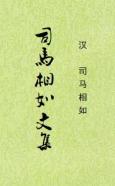 汉 司马相如
司馬相如文集